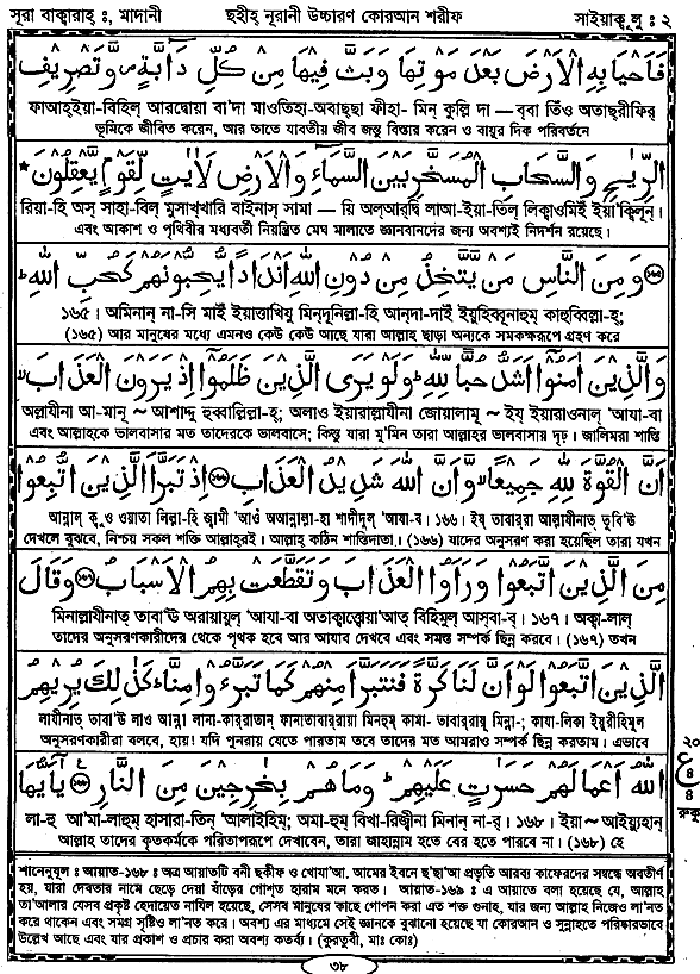 সূরা বাক্বারাহ্ ঃ, মাদানী
ছহীহ্ নূরানী উচ্চারণ কোরআন শরীফ
সাইয়াক্বূলু ঃ ২
فَاَحْيَا بِهِ الْاَرْضَ بَعْدَ مَوْتِهَا وَبَثَّ فِيْهَا مِنْ كُلِّ دَآبَّةٍ وَّتَصْرِيْفِ
ফাআহ্ইয়া-বিহিল্ আরদ্বোয়া বা'দা মাওতিহা-অবাছ্ছা ফীহা- মিন্ কুল্লি দা — ব্বা তিঁও অতাছ্রীফির্
ভূমিকে জীবিত করেন, আর তাতে যাবতীয় জীব জন্তু বিস্তার করেন ও বায়ুর দিক পরিবর্তনে
الرِّيٰحِ وَالسَّحَابِ الْمُسَخَّرِ بَيْنَ السَّمَآءِ وَالْاَرْضِ لَاٰيٰتٍ لِّقَوْمٍ يَّعْقِلُوْنَ
রিয়া-হি অস্ সাহা-বিল্ মুসাখ্খারি বাইনাস্ সামা — য়ি অল্আর্দ্বি লাআ-ইয়া-তিল্ লিক্বাওমিইঁ ইয়া'ক্বিলূন্।
এবং আকাশ ও পৃথিবীর মধ্যবর্তী নিয়ন্ত্রিত মেঘ মালাতে জ্ঞানবানদের জন্য অবশ্যই নিদর্শন রয়েছে।
وَمِنَ النَّاسِ مَنْ يَّتَّخِذُ مِنْ دُوْنِ اللّٰهِ اَنْدَادًا يُّحِبُّوْنَهُمْ كَحُبِّ اللّٰهِ
১৬৫। অমিনান্ না-সি মাইঁ ইয়াত্তাখিযু মিন্দূনিল্লা-হি আন্দা-দাইঁ ইয়ুহিব্বূনাহুম্ কাহুব্বিল্লা-হ্;
(১৬৫) আর মানুষের মধ্যে এমনও কেউ কেউ আছে যারা আল্লাহ ছাড়া অন্যকে সমকক্ষরূপে গ্রহণ করে
وَالَّذِيْنَ اٰمَنُوْٓا اَشَدُّ حُبًّا لِّلّٰهِ وَلَوْ يَرَى الَّذِيْنَ ظَلَمُوْٓا اِذْ يَرَوْنَ الْعَذَابَ
অল্লাযীনা আ-মানূ ~ আশাদ্দু হুব্বাল্লিল্লা-হ্; অলাও ইয়ারাল্লাযীনা জোয়ালামূ ~ ইয্ ইয়ারাওনাল্ 'আযা-বা
এবং আল্লাহকে ভালবাসার মত তাদেরকে ভালবাসে; কিন্তু যারা মু'মিন তারা আল্লাহর ভালবাসায় দৃঢ়। জালিমরা শাস্তি
اَنَّ الْقُوَّةَ لِلّٰهِ جَمِيْعًا وَّاَنَّ اللّٰهَ شَدِيْدُ الْعَذَابِ اِذْ تَبَرَّاَ الَّذِيْنَ اتُّبِعُوْا
আন্নাল্ ক্বু ও ওয়াতা লিল্লা-হি জ্বামী 'আওঁ অআন্নাল্লা-হা শাদীদুল্ 'আযা-ব। ১৬৬। ইয্ তাবার্রা আল্লাযীনাত্ তুবি'উ
দেখলে বুঝবে, নিশ্চয় সকল শক্তি আল্লাহরই। আল্লাহ কঠিন শাস্তিদাতা। (১৬৬) যাদের অনুসরণ করা হয়েছিল তারা যখন
مِنَ الَّذِيْنَ اتَّبَعُوْا وَرَاَوُا الْعَذَابَ وَتَقَطَّعَتْ بِهِمُ الْاَسْبَابُ وَقَالَ
মিনাল্লাযীনাত্ তাবা'উ অরায়ায়ুল্ 'আযা-বা অতাক্বাত্ত্বোয়া'আত্ বিহিমুল্ আস্বা-ব্। ১৬৭। অক্বা-লাল্
তাদের অনুসরণকারীদের থেকে পৃথক হবে আর আযাব দেখবে এবং সমস্ত সম্পর্ক ছিন্ন করবে। (১৬৭) তখন
الَّذِيْنَ اتَّبَعُوْا لَوْ اَنَّ لَنَا كَرَّةً فَنَتَبَرَّاَ مِنْهُمْ كَمَا تَبَرَّءُوْا مِنَّا كَذٰلِكَ يُرِيْهِمُ
লাযীনাত্ তাবা'উ লাও আন্না লানা-কার্রাতান্ ফানাতাবার্রায়া মিন্হুম্ কামা- তাবার্রায়ূ মিন্না-; কাযা-লিকা ইয়ুরীহিমুল্
অনুসরণকারীরা বলবে, হায়! যদি পুনরায় যেতে পারতাম তবে তাদের মত আমরাও সম্পর্ক ছিন্ন করতাম। এভাবে
اللّٰهُ اَعْمَالَهُمْ حَسَرٰتٍ عَلَيْهِمْ وَمَا هُمْ بِخٰرِجِيْنَ مِنَ النَّارِ يٰٓاَيُّهَا
লা-হু আ'মা-লাহুম্ হাসারা-তিন্ 'আলাইহিম্; অমা-হুম্ বিখা-রিজ্বীনা মিনান্ না-র্। ১৬৮। ইয়া~ আইয়ুহান্
আল্লাহ তাদের কৃতকর্মকে পরিতাপরূপে দেখাবেন, তারা জাহান্নাম হতে বের হতে পারবে না। (১৬৮) হে
২০
ع
৪
৪
রুকূ
শানেনুযূল ঃ আয়াত-১৬৮ ঃ অত্র আয়াতটি বনী ছকীফ ও খোযা'আ, আমের ইবনে ছ'ছাআ প্রভৃতি আরব্য কাফেরদের সম্বন্ধে অবতীর্ণ
হয়, যারা দেবতার নামে ছেড়ে দেয়া ষাঁড়ের গোশ্ত হারাম মনে করত। আয়াত-১৬৯ ঃ এ আয়াতে বলা হয়েছে যে, আল্লাহ
তা'আলার যেসব প্রকৃষ্ট হেদায়েত নাযিল হয়েছে, সেসব মানুষের কাছে গোপন করা এত শক্ত গুনাহ, যার জন্য আল্লাহ নিজেও লা'নত
করে থাকেন এবং সমগ্র সৃষ্টিও লা'নত করে। অবশ্য এর মাধ্যমে সেই জ্ঞানকে বুঝানো হয়েছে যা কোরআন ও সুন্নাহতে পরিষ্কারভাবে
উল্লেখ আছে এবং যার প্রকাশ ও প্রচার করা অবশ্য কর্তব্য। (কুরতুবী, মাঃ কোঃ)
৩৮